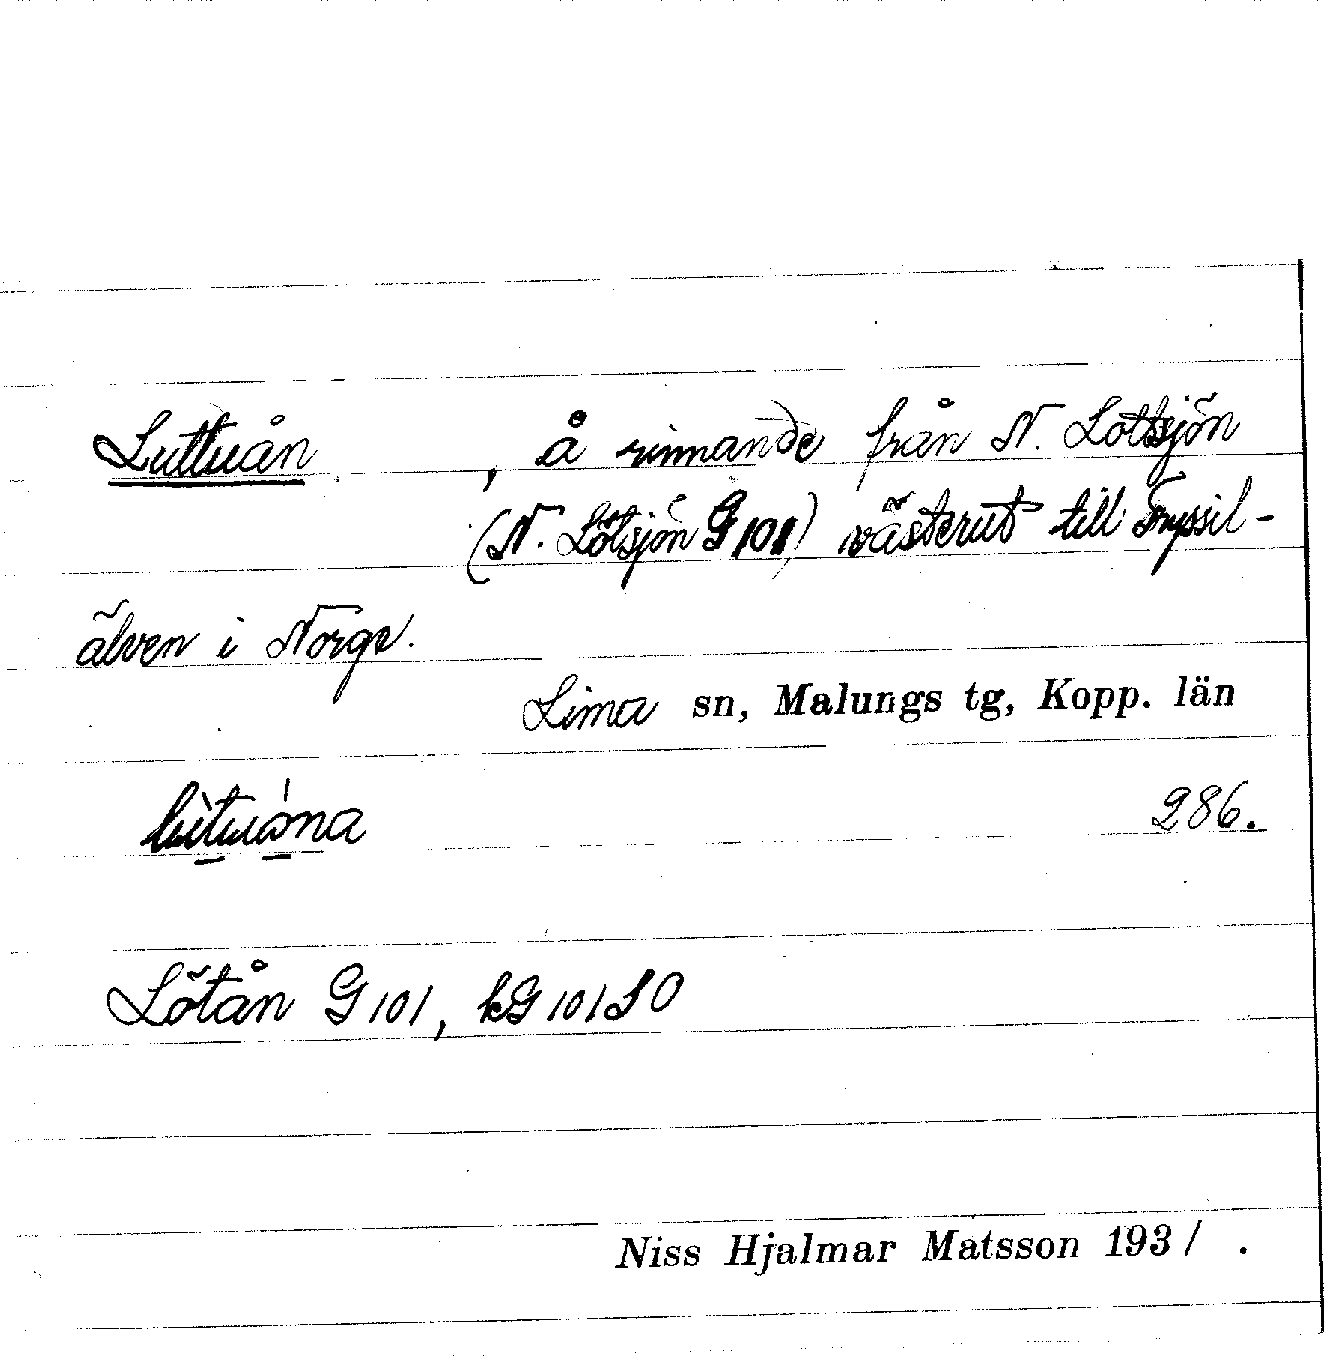 Luttuån , å rinnande från N. Lötsjön
(N. Lötsjön G 101) västerut till Tryssil-
älven i Norge.
Lima sn, Malungs tg, Kopp. län
286.
Lötån G 101, kG 101 SO
Niss Hjalmar Matsson 1931 .